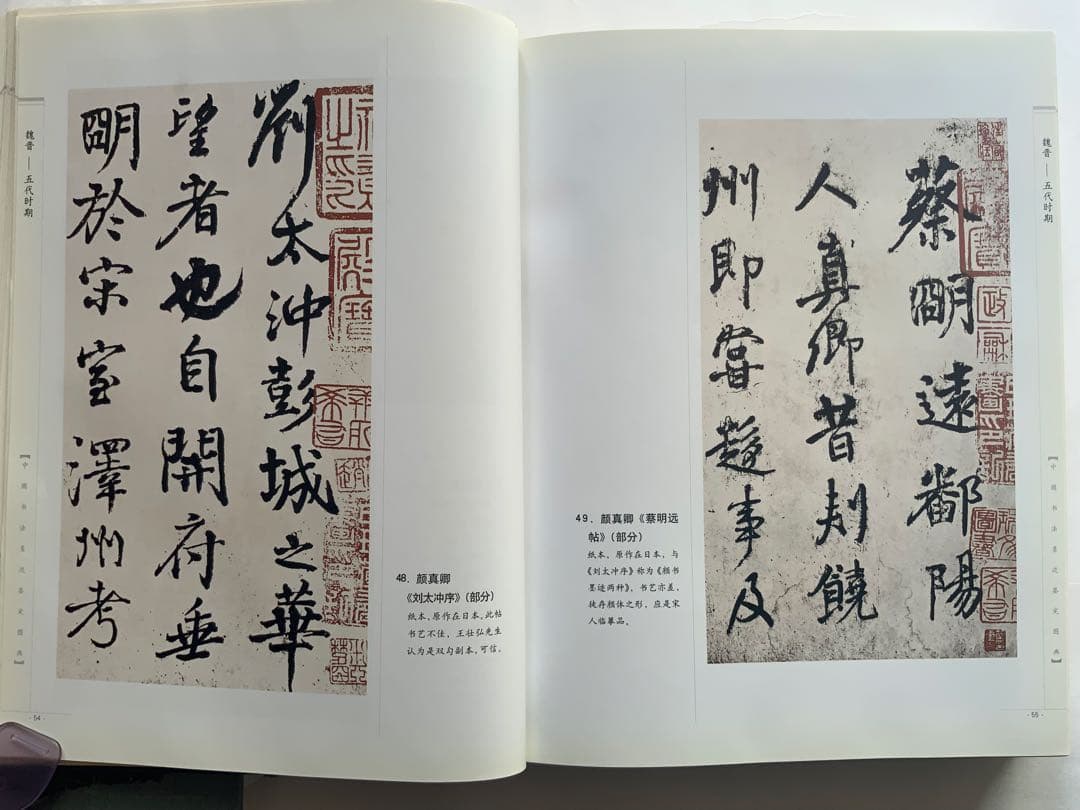 魏晋——五代时期
【中国书法墨迹鉴定图典】
劉太沖彭城之華
望者也自開府垂
明於宋室澤州考
48．颜真卿
《刘太冲序》（部分）
纸本、原作在日本，此帖
书艺不佳，王壮弘先生
认为是双勾副本，可信。
·54·
魏晋——五代时期
【中国书法墨迹鉴定图典】
蔡明遠鄱陽
人真卿昔刺饒
州即嘗趨事及
49．颜真卿《蔡明远
帖》（部分）
纸本、原作在日本，与
《刘太冲序》称为《颜书
墨迹两种》，书艺亦差，
徒存颜体之形，应是宋
人临摹品。
·55·